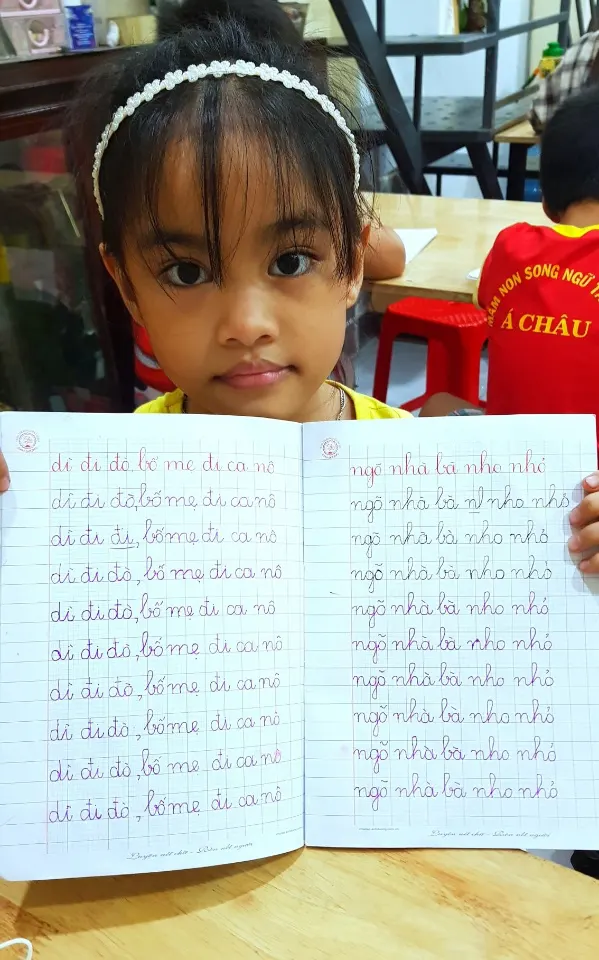 MẦM NON SONG NGỮ
Á CHÂU
dì đi đò, bố mẹ đi ca nô
dì đi đò, bố mẹ đi ca nô
dì đi đi, bố mẹ đi ca nô
dì đi đò, bố mẹ đi ca nô
dì đi đò, bố mẹ đi ca nô
dì đi đò, bố mẹ đi ca nô
dì đi đò, bố mẹ đi ca nô
dì đi đò, bố mẹ đi ca nô
dì đi đò, bố mẹ đi ca nô
dì đi đò, bố mẹ đi ca nô
Luyện nét chữ - Rèn nết người
ngõ nhà bà nho nhỏ
ngõ nhà bà nl nho nhỏ
ngõ nhà bà nho nhỏ
ngõ nhà bà nho nhỏ
ngõ nhà bà nho nhỏ
ngõ nhà bà nho nhỏ
ngõ nhà bà nho nhỏ
ngõ nhà bà nho nhỏ
ngõ nhà bà nho nhỏ
ngõ nhà bà nho nhỏ
Luyện nét chữ - Rèn nết người